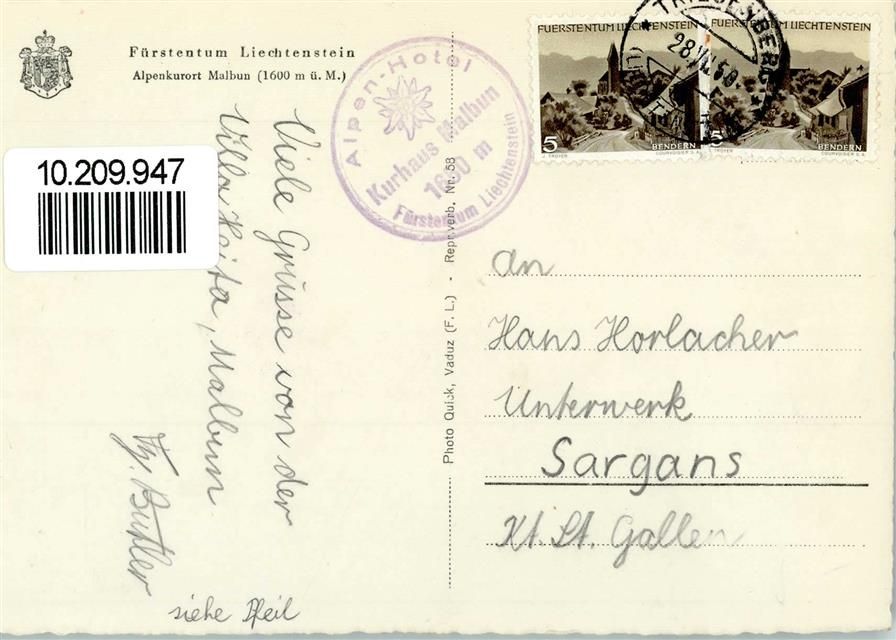 Fürstentum Liechtenstein
Alpenkurort Malbun (1600 m ü. M.)
10.209.947
Viele Grüsse von der
Villa Rita, Malbun.
siehe Pfeil
Alpen-Hotel
Kurhaus Malbun
1650 m
Fürstentum Liechtenstein
Photo Quick, Vaduz (F. L.) - Repr. verb. Nr. 58
FUERSTENTUM LIECHTENSTEIN
5
BENDERN
J. TROYER
COURVOISIER S.A.
FUERSTENTUM LIECHTENSTEIN
5
BENDERN
J. TROYER
COURVOISIER S.A.
TRIESENBERG
An
Hans Horlacher
Unterwerk
Sargans
Kt. St. Gallen